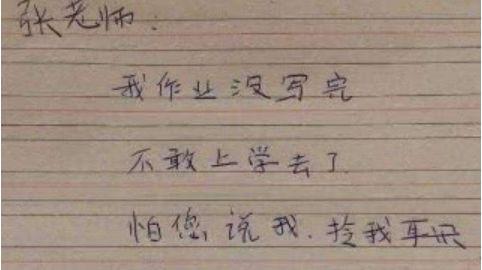 张老师:
我作业没写完
不敢上学去了
怕您说我.拎我耳朵